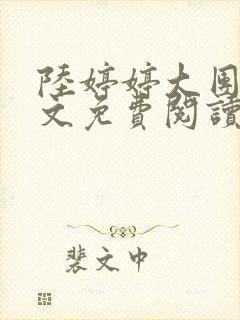 陸婷婷大團
文免費閱讀
裴文中